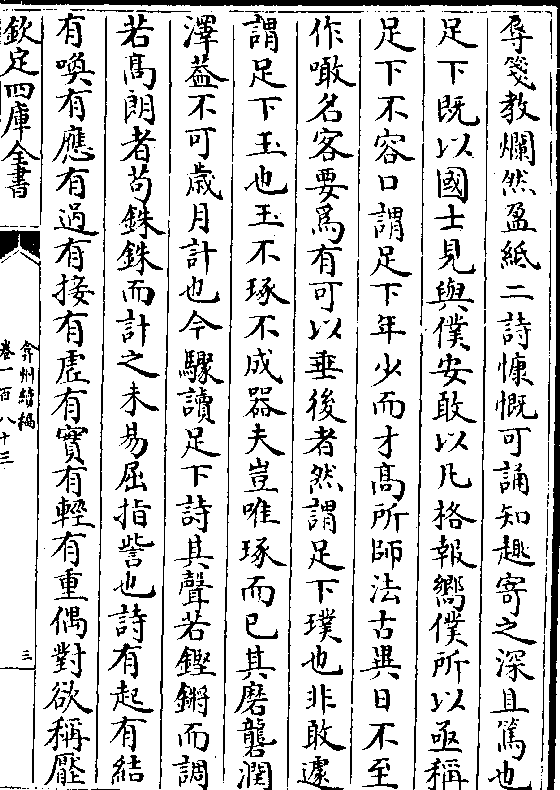 辱箋教爛然盈紙二詩慷慨可誦知趣寄之深且篤也
足下既以國士見與僕安敢以凡格報嚮僕所以亟稱
足下不容口謂足下年少而才髙所師法古異日不至
作噉名客要爲有可以垂後者然謂足下璞也非敢遽
謂足下玉也玉不琢不成器夫豈唯琢而已其磨礱潤
澤葢不可歳月計也今驟讀足下詩其聲若鏗鏘而調
若髙朗者茍銖銖而計之未易屈指訾也詩有起有結
有喚有應有過有接有虚有實有輕有重偶對欲稱壓
欽定四庫全書
弇州續稿
卷一百八十三
三